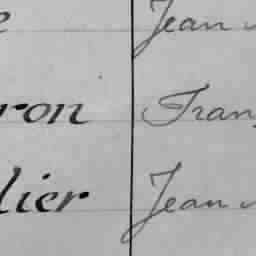 e Jean
ron Fran
lier Jean